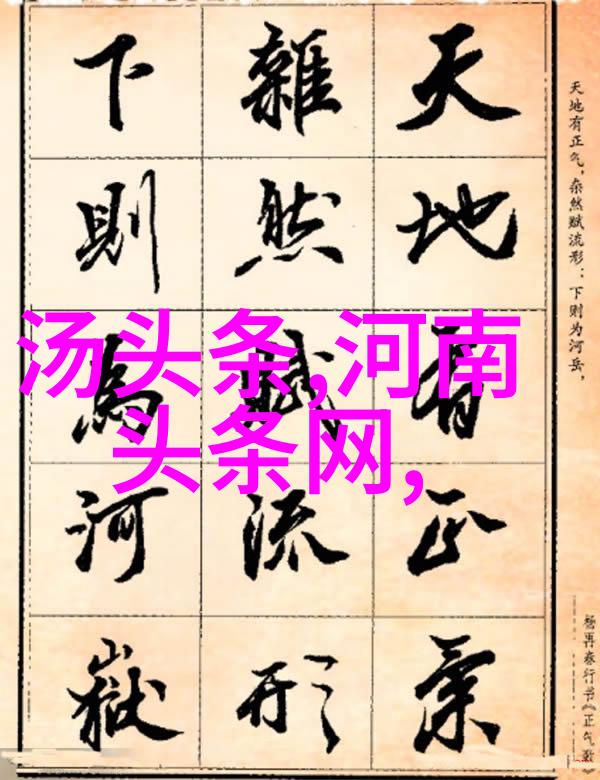 天地有正氣
雜然賦流形
下則為河嶽
天地有正气，杂然赋流形：下则为河岳，
杨再春行书《正气歌》
汤头条,河南
头条网,